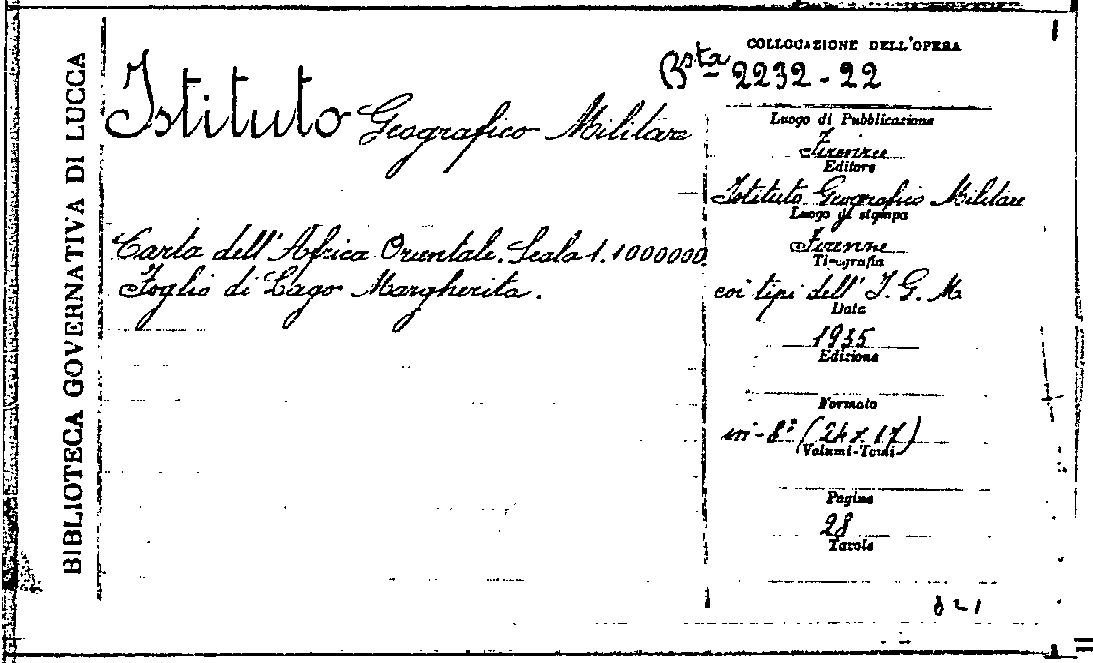 BIBLIOTECA GOVERNATIVA DI LUCCA
Istituto Geografico Militare
Carta dell'Africa Orientale. Scala 1.1000000.
Foglio di Lago Margherita.
COLLOCAZIONE DELL'OPERA
Bsta 2232-22
Luogo di Pubblicazione
Firenze
Editore
Istituto Geografico Militare
Luogo di stampa
Firenze
Tipografia
coi tipi dell' I. G. M.
Data
1935
Edizione
Formato
in-8° (24 x 17)
Volumi-Tomi
Pagine
28
Tavole